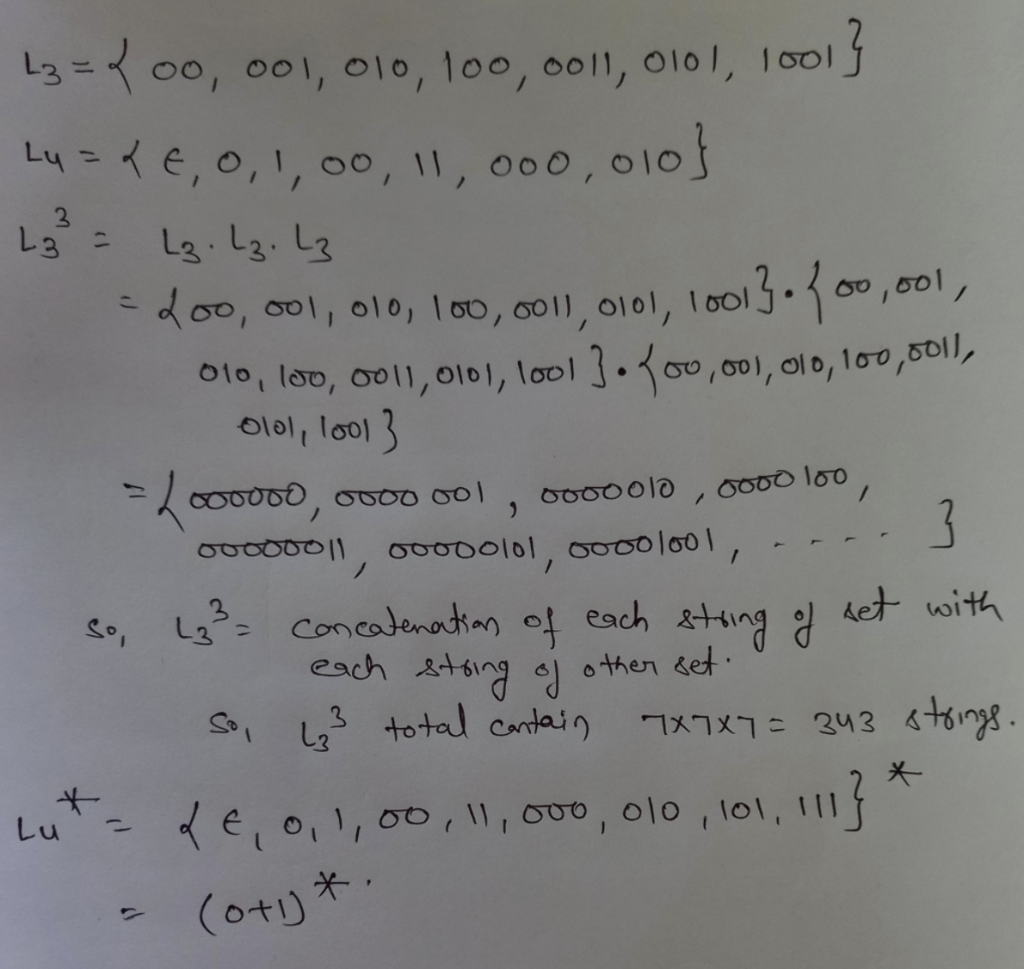 L3 = { 00, 001, 010, 100, 0011, 0101, 1001 }
L4 = { ε, 0, 1, 00, 11, 000, 010 }
L3³ = L3 . L3 . L3
= { 00, 001, 010, 100, 0011, 0101, 1001 } . { 00, 001,
010, 100, 0011, 0101, 1001 } . { 00, 001, 010, 100, 0011,
0101, 1001 }
= { 000000, 0000001, 0000010, 0000100,
00000011, 00000101, 00001001, - - - - }
So, L3³ = concatenation of each string of set with
each string of other set.
So, L3³ total contain 7x7x7 = 343 strings.
L4* = { ε, 0, 1, 00, 11, 000, 010, 101, 111 }*
= (0+1)*.